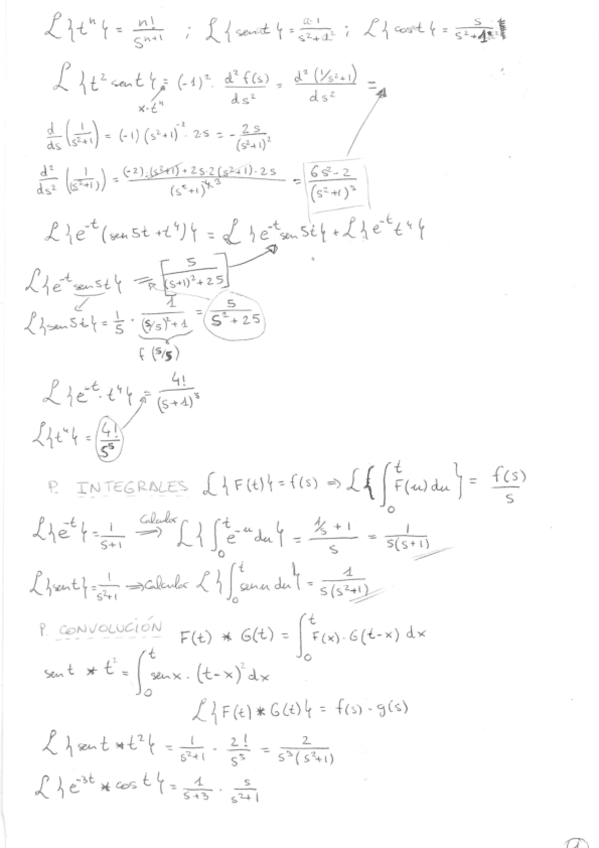 ℒ{tⁿ} = n!/sⁿ⁺¹ ; ℒ{sen t} = /s²+1² ; ℒ{cos t} = s/s²+1²
ℒ{t² sen t} = (-1)² · d² f(s)/ds² = d² (1/s²+1)/ds² =
x·tⁿ
d/ds (1/s²+1) = (-1)(s²+1)⁻² · 2s = - 2s/(s²+1)²
d²/ds² (1/(s²+1)) = (-2)·(s²+1) + 2s·2(s²+1)·2s/(s²+1)⁴ ³ = 6s²-2/(s²+1)³
ℒ{e⁻ᵗ(sen 5t + t⁴)} = ℒ{e⁻ᵗ sen 5t} + ℒ{e⁻ᵗ t⁴}
ℒ{e⁻ᵗ sen 5t} = [5/(s+1)²+25]
ℒ{sen 5t} = 1/5 · 1/(s/5)²+1 = 5/s²+25
f(s/5)
ℒ{e⁻ᵗ · t⁴} = 4!/(s+1)⁵
ℒ{t⁴} = 4!/s⁵
P. INTEGRALES ℒ{F(t)} = f(s) ⇒ ℒ{∫₀ᵗ F(u) du} = f(s)/s
ℒ{e⁻ᵗ} = 1/s+1 calcular ⟹ ℒ{∫₀ᵗ e⁻ᵘ du} = 1/s+1/s = 1/s(s+1)
ℒ{sen t} = 1/s²+1 ⇒ calcular ℒ{∫₀ᵗ sen u du} = 1/s(s²+1)
P. CONVOLUCIÓN F(t) * G(t) = ∫₀ᵗ F(x)·G(t-x) dx
sen t * t² = ∫₀ᵗ sen x · (t-x)² dx
ℒ{F(t) * G(t)} = f(s) · g(s)
ℒ{sen t * t²} = 1/s²+1 · 2!/s³ = 2/s³(s²+1)
ℒ{e⁻³ᵗ * cos t} = 1/s+3 · s/s²+1
1